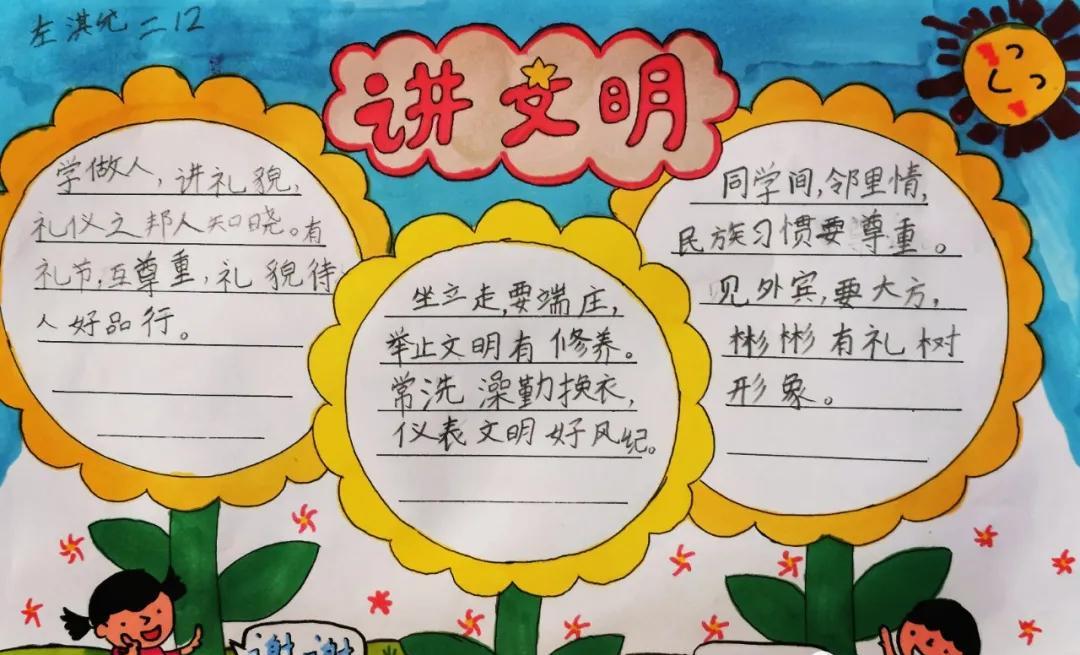 左淇纯二12
讲文明
学做人，讲礼貌，
礼仪之邦人知晓。有
礼节，互尊重，礼貌待
人好品行。
坐立走，要端庄，
举止文明有修养。
常洗澡勤换衣，
仪表文明好风纪。
同学间，邻里情，
民族习惯要尊重。
见外宾，要大方，
彬彬有礼树
形象。
谢谢